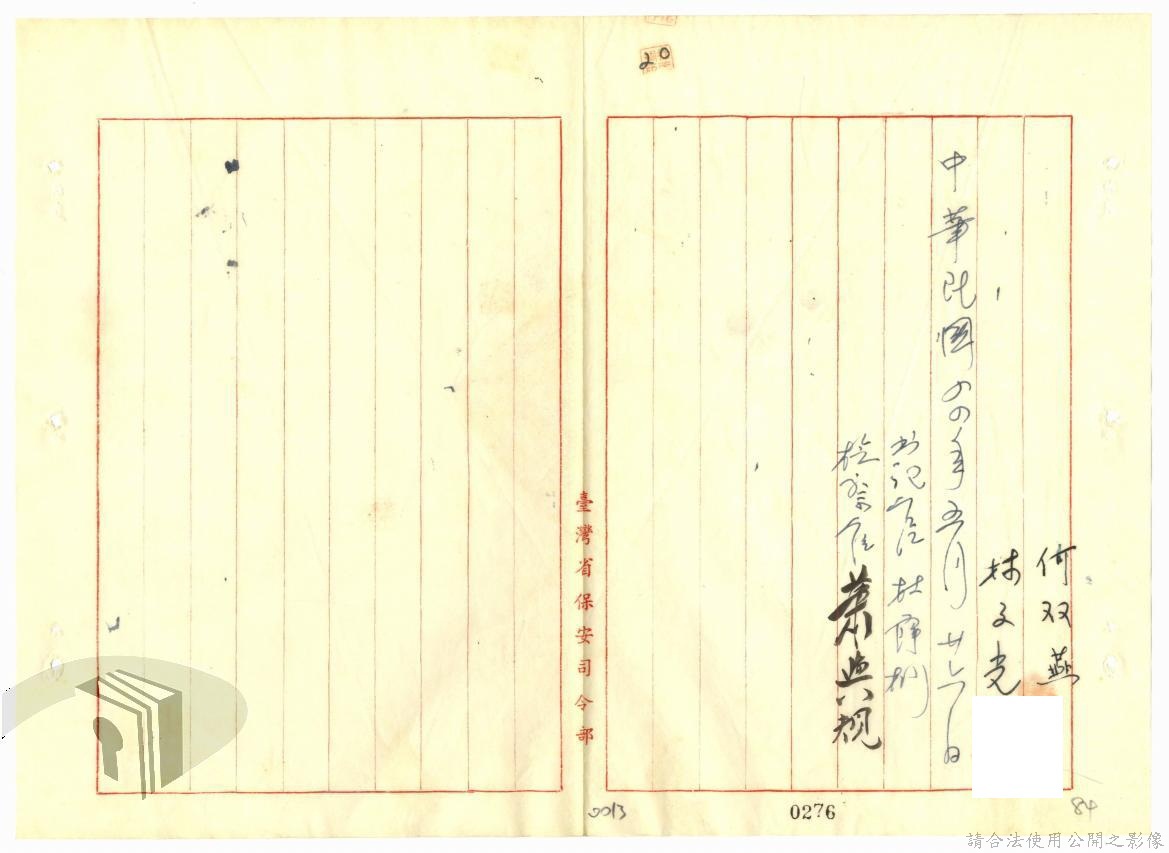 20
何双燕
林文堯
中華民國四四年五月廿六日
书记官 杜
檢察官 萧與规
臺灣省保安司令部
0013
0276
84
請合法使用公開之影像